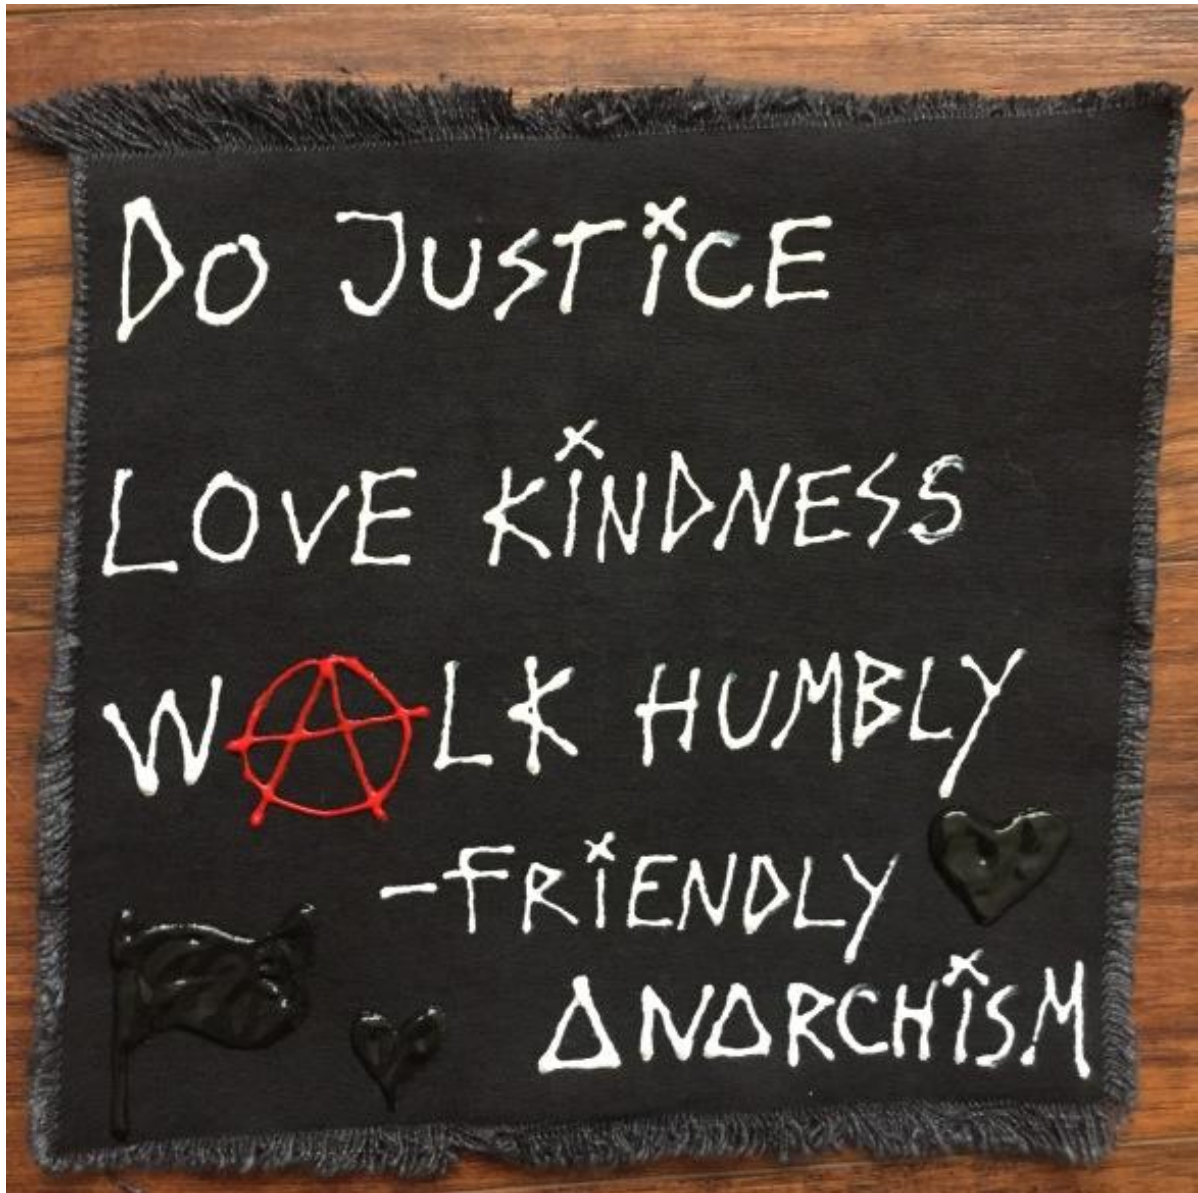 DO JUSTICE
LOVE KINDNESS
WALK HUMBLY
-FRIENDLY
ANARCHISM